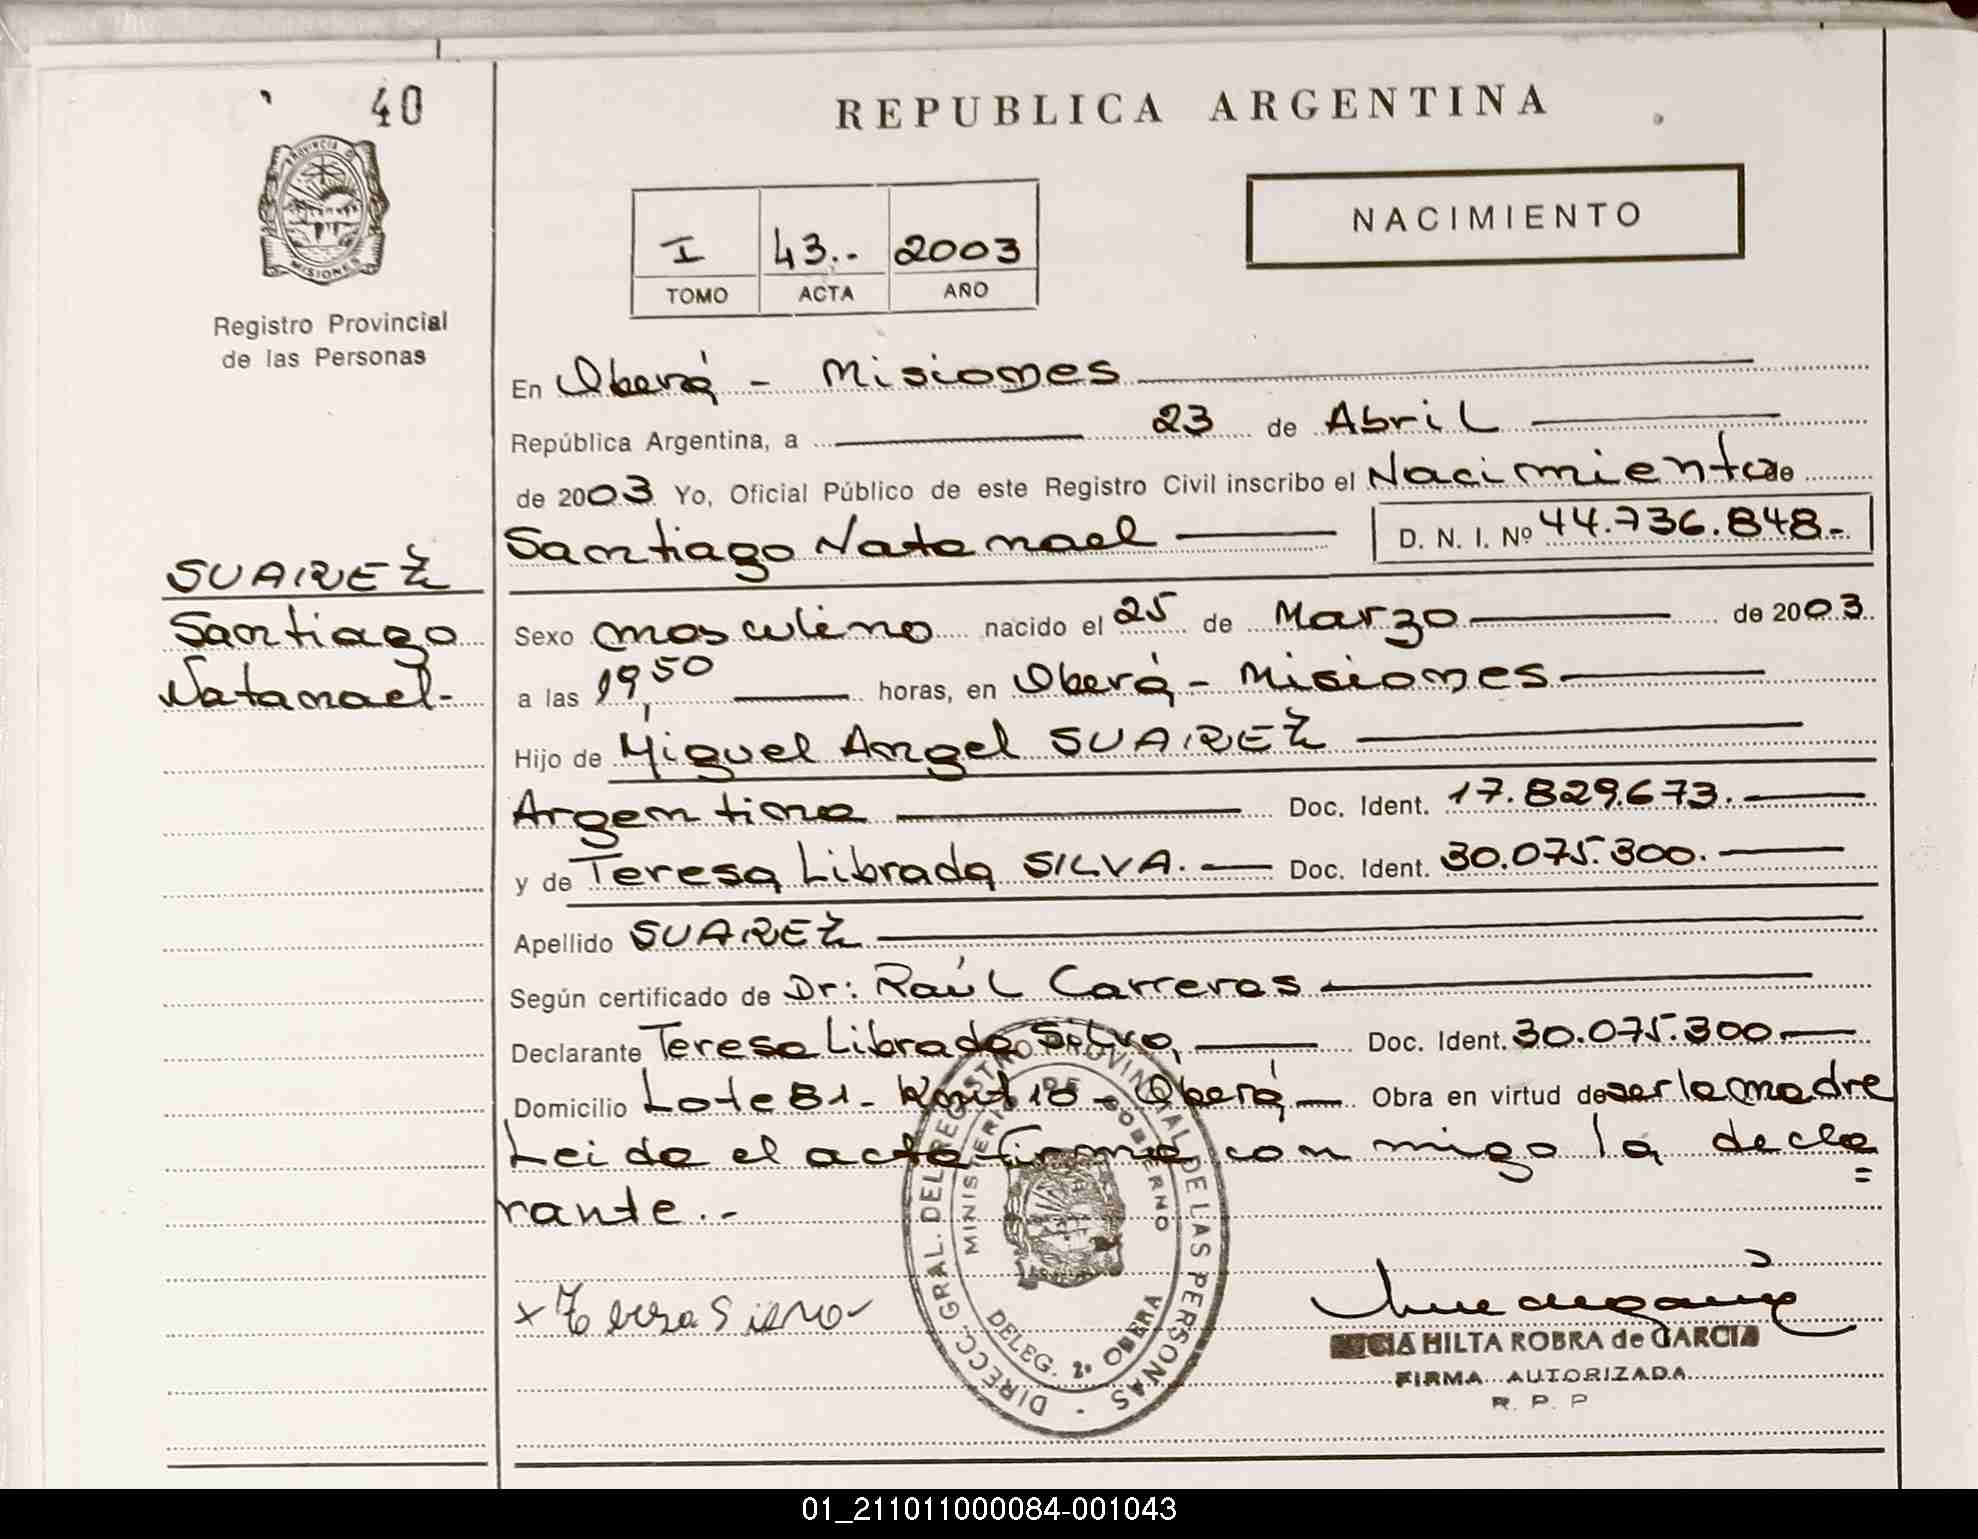 40
PROVINCIA DE
MISIONES
Registro Provincial
de las Personas
SUAREZ
Santiago
Natanael-
REPUBLICA ARGENTINA
I 43.- 2003
TOMO ACTA AÑO
NACIMIENTO
En Oberá - Misiones
República Argentina, a 23 de Abril
de 2003 Yo, Oficial Público de este Registro Civil inscribo el Nacimiento de
Santiago Natanael D. N. I. Nº 44.736.848.-
Sexo masculino nacido el 25 de Marzo de 2003
a las 19,50 horas, en Oberá - Misiones
Hijo de Miguel Angel SUAREZ
Argentina Doc. Ident. 17.829.673.
y de Teresa Librada SILVA. Doc. Ident. 30.075.300.
Apellido SUAREZ
Según certificado de Dr: Raúl Carreras
Declarante Teresa Librada Silva, Doc. Ident. 30.075.300
Domicilio Lote 81- 18 - Oberá Obra en virtud de ser la madre
Leida el acta firma con migo la decla
rante.-
DIRECC. GRAL. DEL REGISTRO PROVINCIAL DE LAS PERSONAS -
MINISTERIO DE GOBIERNO
DELEG. 2º OBERA
x Teresa
HILTA ROBRA de GARCIA
FIRMA AUTORIZADA
R. P. P
01_211011000084-001043